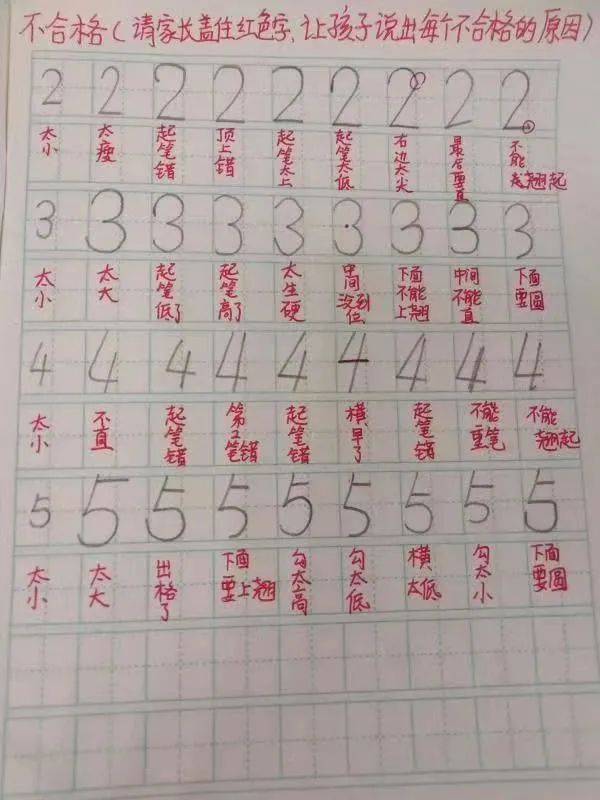 不合格(请家长盖住红色字,让孩子说出每个不合格的原因)
2 2 2 2 2 2 2 2 2
太小 太瘦 起笔错 顶上错 起笔太上 起笔太低 右边太尖 最后要直 不能翘起
3 3 3 3 3 3 3 3 3
太小 太大 起笔低了 起笔高了 太生硬 中间没到位 下面不能上翘 中间不能直 下面要圆
4 4 4 4 4 4 4 4 4
太小 不直 起笔错 第2笔错 起笔错 横早了 起笔错 不能重笔 不能翘起
5 5 5 5 5 5 5 5 5
太小 太大 出格了 下面要上翘 勾太高 勾太低 横太低 勾太小 下面要圆